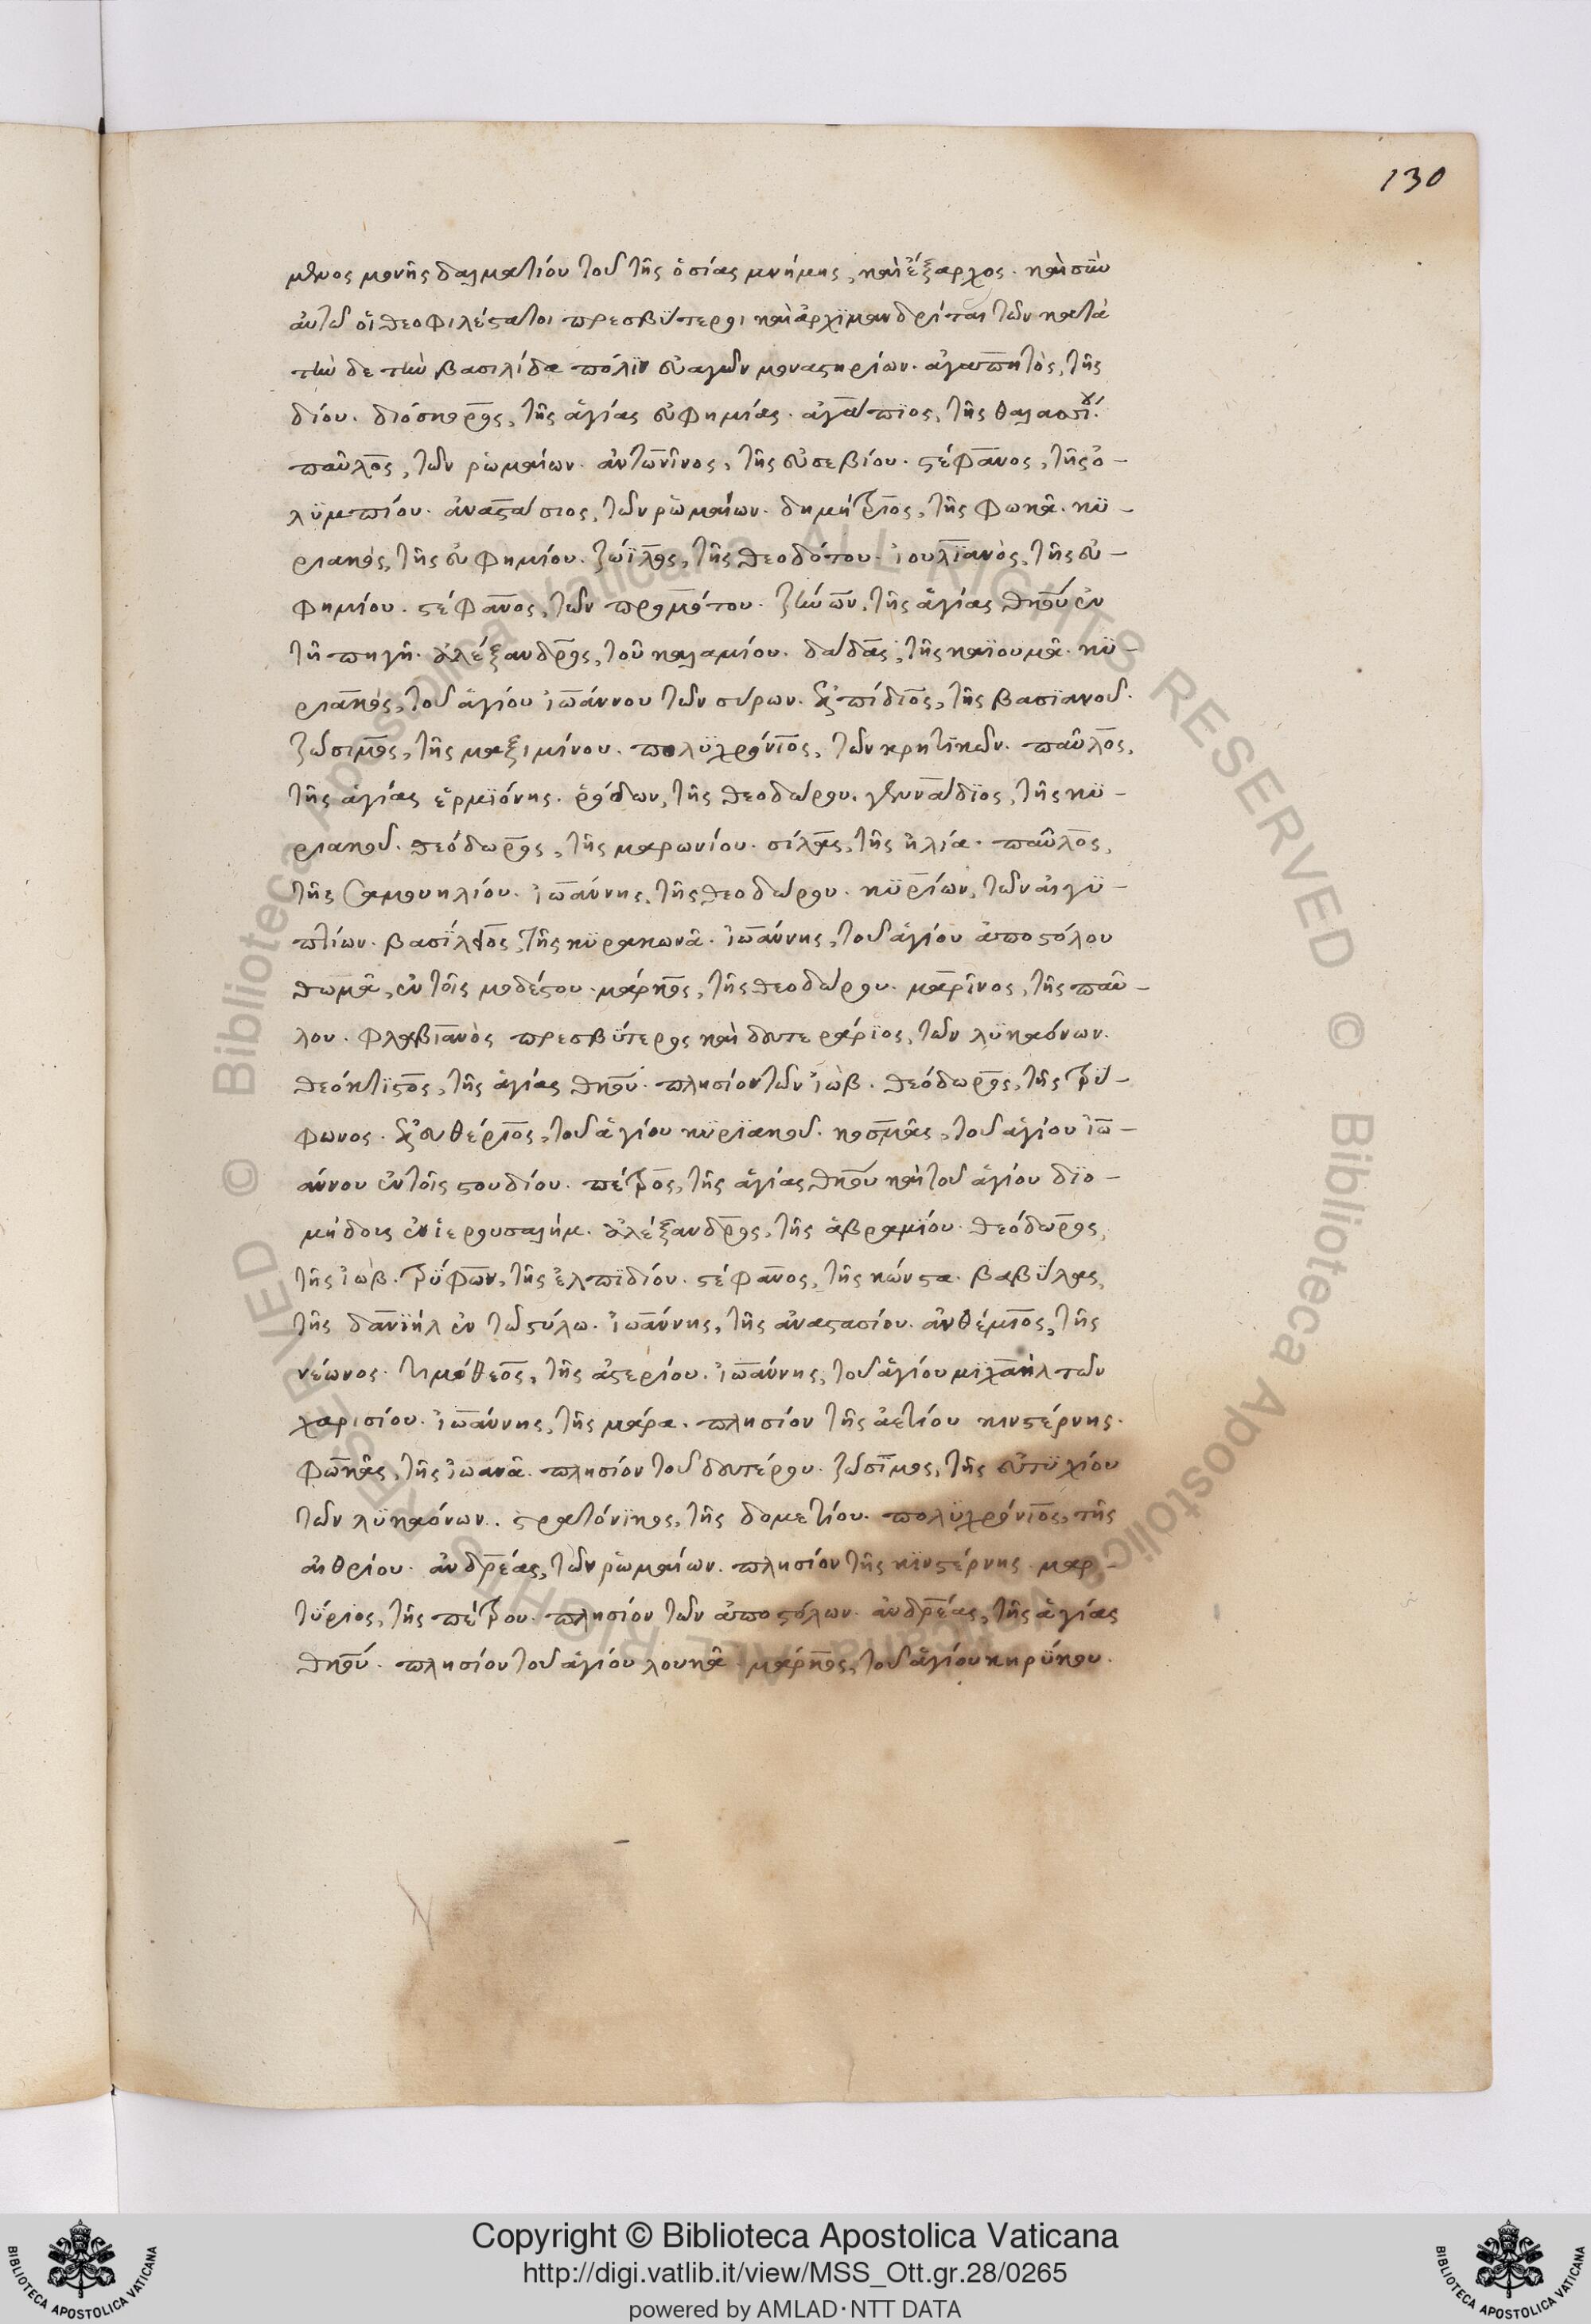 130
μένος μονῆς δαλματίου τοῦ τῆς ὁσίας μνήμης, καὶ ἔξαρχος. καὶ σὺν
αὐτῶ οἱ θεοφιλέστατοι πρεσβΰτεροι καὶ ἀρχϊμανδρίται τῶν κατὰ
τὴν δε τὴν βασιλίδα πόλϊν εὐαγῶν μοναστηρίων. ἀγαπητὸς, τῆς
δίου. διόσκορος, τῆς ἁγίας εὐφημίας. ἀγάπϊος, τῆς θαλασσίου.
παῦλος, τῶν ῥωμαίων. ἀντωνῖνος, τῆς εὐσεβίου. στέφανος, τῆς ὀ-
λϋμπίου. ἀναστάσιος, τῶν ῥωμαίων. δημήτριος, τῆς φωκᾶ. κϋ-
ριακὸς, τῆς εὐφημίου. ζώϊλος, τῆς θεοδότου. ἰουλϊανὸς, τῆς εὐ-
φημίου. στέφανος, τῶν προμότου. ζήνων, τῆς ἁγίας θκοῦ ἐν
τῆ πηγῆ. ἀλέξανδρος, τοῦ καλαμίου. δάδας, τῆς καϊουμᾶ. κϋ-
ριακὸς, τοῦ ἁγίου ἰωάννου τῶν σύρων. ἐλπίδιος, τῆς βασϊανοῦ.
ζώσιμος, τῆς μαξιμίνου. πολϋχρόνϊος, τῶν κρητϊκῶν. παῦλος,
τῆς ἁγίας ἑρμϊόνης. ῥόδων, τῆς θεοδώρου. γενναδϊος, τῆς κϋ-
ριακοῦ. θεόδωρος, τῆς μαρωνίου. σίλας, τῆς ἠλία. παῦλος,
τῆς σαμουηλίου. ἰωάννης, τῆς θεοδώρου. κϋρίων, τῶν αἰγϋ-
πτίων. βασΐλειος, τῆς κϋρακωνᾶ. ἰωάννης, τοῦ ἁγίου ἀποστόλου
θωμᾶ, ἐν τοῖς μοδέστου. μάρκος, τῆς θεοδώρου. μαρῖνος, τῆς παύ-
λου. φλαβιανὸς πρεσβΰτερος καὶ δευτεράρϊος, τῶν λϋκαόνων.
θεόκτϊστος, τῆς ἁγίας θκοῦ. πλησίον τῶν ἰὼβ. θεόδωρος, τῆς τρύ-
φωνος. ἐλευθέριος, τοῦ ἁγίου κϋρϊακοῦ. κοσμᾶς, τοῦ ἁγίου ἰω-
άννου ἐν τοῖς στουδίου. πέτρος, τῆς ἁγίας θκοῦ καὶ τοῦ ἁγίου δϊο-
μήδους ἐν ἱερουσαλήμ. ἀλέξανδρος, τῆς ἀβραμΐου. θεόδωρος,
τῆς ἰώβ. τρύφων, τῆς ἐλπϊδίου. στέφανος, τῆς κώνστα. βαβΰλας,
τῆς δανϊὴλ ἐν τῶ στύλω. ἰωάννης, τῆς ἀναστασίου. ἀνθέμιος, τῆς
νέωνος. τιμόθεος, τῆς ἀστερίου. ἰωάννης, τοῦ ἁγίου μιχαὴλ τῶν
χαρισίου. ἰωάννης, τῆς μάρα. πλησίον τῆς ἀετίου κινστέρνης.
φωκᾶς, τῆς ἰωανᾶ. πλησίον τοῦ δευτέρου. ζώσϊμος, τῆς εὐτϋχίου
τῶν λϋκαόνων. στρατόνϊκος, τῆς δομετίου. πολϋχρόνϊος, τῆς
αἰθρίου. ἀνδρέας, τῶν ῥωμαίων. πλησίον τῆς κϊνστέρνης. μαρ-
τΰριος, τῆς πέτρου. πλησίον τῶν ἀποστόλων. ἀνδρέας, τῆς ἁγίας
θκοῦ. πλησίον τοῦ ἁγίου λουκᾶ. μάρκος, τοῦ ἁγίου κηρΰκου.
Copyright © Biblioteca Apostolica Vaticana
http://digi.vatlib.it/view/MSS_Ott.gr.28/0265
powered by AMLAD·NTT DATA